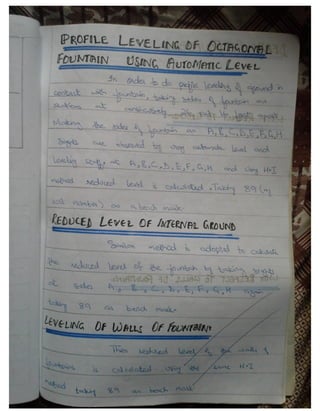 PROFILE LEVELING OF OCTAGONAL
FOUNTAIN USING AUTOMATIC LEVEL
In order to do profile leveling of ground in
contact with fountain, taking sides of fountain as
stations at
the sides of fountain as A,B,C,D,E,F,G,H
are observed by using automatic level and
leveling staff, at A,B,C,D,E,F,G,H and using H.I
method reduced level is calculated, Taking 89 (my
roll number) as a bench mark.
REDUCED LEVEL OF INTERNAL GROUND
Similar method is adopted to calculate
the reduced level of the fountain by taking
at sides A, B, C, D, E, F, G, H again
taking 89 as bench mark.
LEVELING OF WALLS OF FOUNTAIN
Then reduced level of the walls of
fountain is calculated using the same H.I
method taking 89 as bench mark